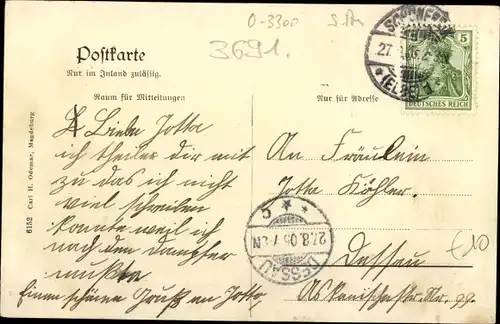 0-3300
3691.
Postkarte
Nur im Inland zulässig.
Raum für Mitteilungen
Nur für Adresse
SCHÖNEB
27.
(ELBE)
5
DEUTSCHES REICH
6152 Carl H. Odemar, Magdeburg
Liebe Jotta
ich theile dir mit
zu das ich nicht
viel schreiben
konnte weil ich
nach den Dampfer
mußte
Einen schönen Gruß an Jotta
An Fräulein
Jotta Köhler
Dessau
Askanischestr. Nr. 99.
DESSAU
27.8.06 7-8N
* C *
€10